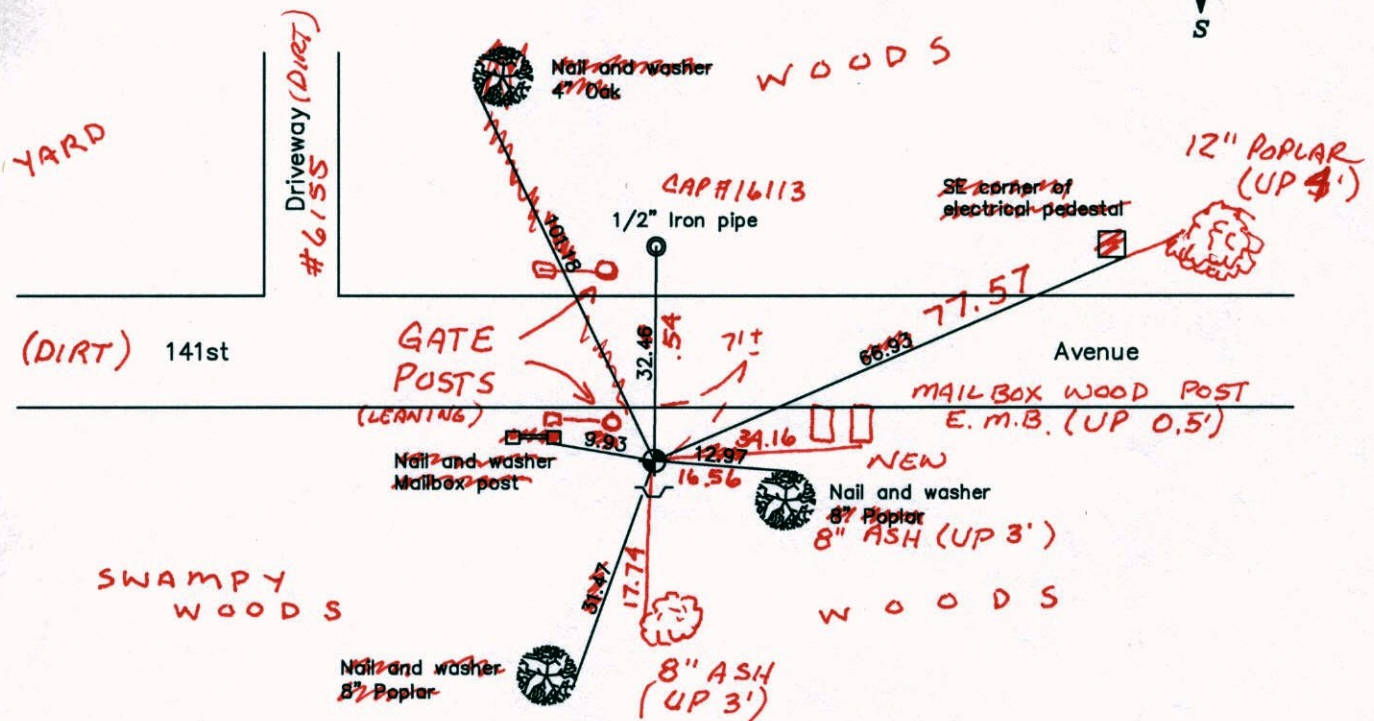 S
Driveway (DIRT)
#6155
YARD
Nail and washer
4" Oak
WOODS
12" POPLAR
(UP 4')
CAP #16113
1/2" Iron pipe
SE corner of
electrical pedestal
101.18
77.57
66.93
32.46
.54
7'±
(DIRT) 141st
Avenue
GATE
POSTS
(LEANING)
MAILBOX WOOD POST
E.M.B. (UP 0.5')
9.93
34.16
12.97
16.56
NEW
Nail and washer
Mailbox post
Nail and washer
8" Poplar
8" ASH (UP 3')
31.47
17.74
SWAMPY
WOODS
WOODS
Nail and washer
8" Poplar
8" ASH
(UP 3')